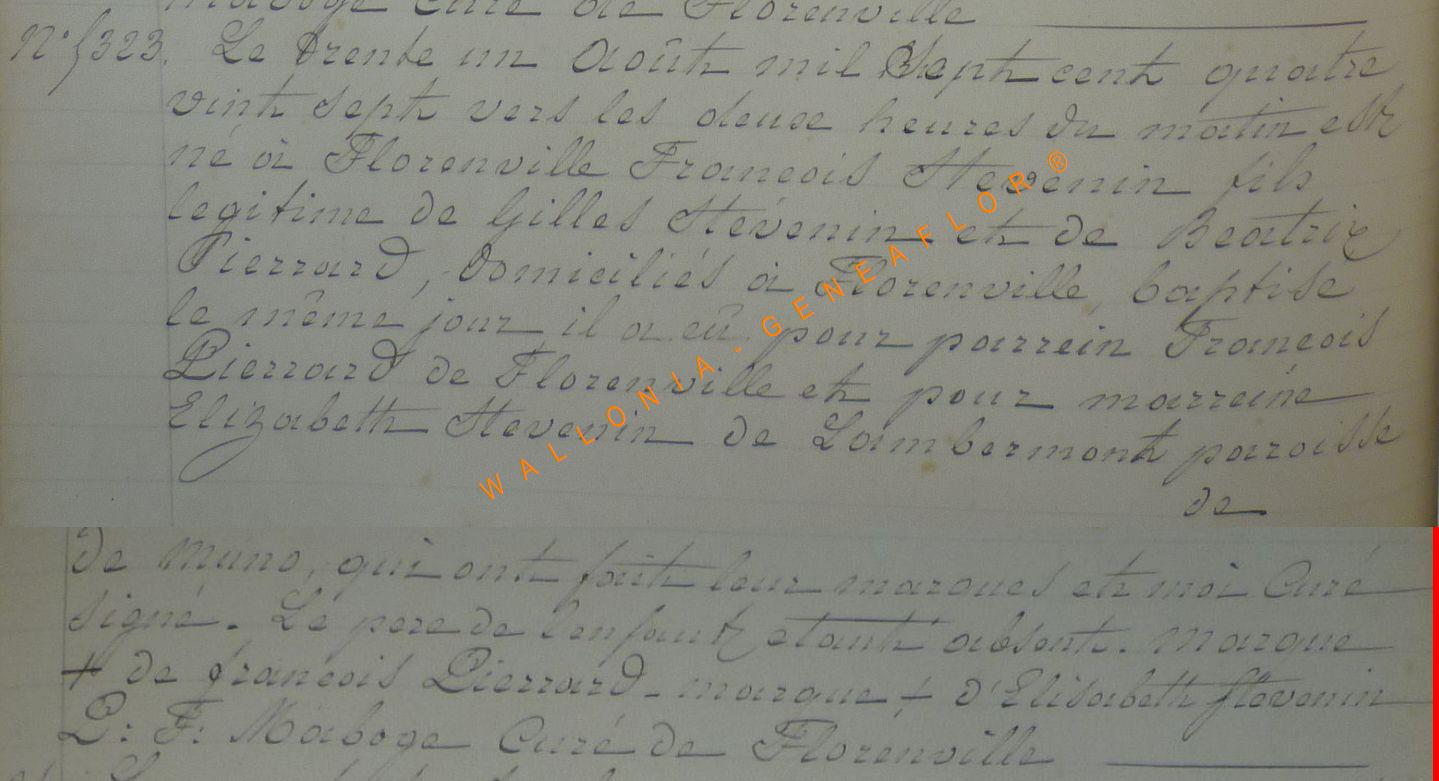 Maboge Curé de Florenville
N° 323. Le trente un Août mil Sept cent quatre
vint sept vers les deux heures du matin est
né à Florenville Francois Stevenin fils
legitime de Gilles Stévenin et de Beatrix
Pierrard, domiciliés à Florenville, baptise
le même jour il a eû pour parrein Francois
Pierrard de Florenville et pour marreine
Elizabeth Stevenin de Lambermont paroisse
de
de Muno, qui ont fait leur marques et moi Curé
signé. Le pere de l'enfant etant absent. Marque
+ de francois Pierrard - marque + d'Elisabeth Stevenin
P: F: Maboge Curé de Florenville
WALLONIA - GENEAFLOR ®